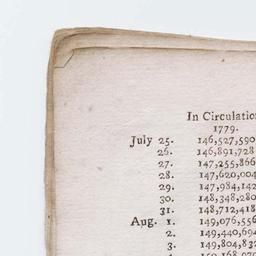 In Circulation
1779.
July 25. 146,527,590
26. 146,891,728
27. 147,255,866
28. 147,620,004
29. 147,984,142
30. 148,348,280
31. 148,712,418
Aug. 1. 149,076,556
2. 149,440,694
3. 149,804,832